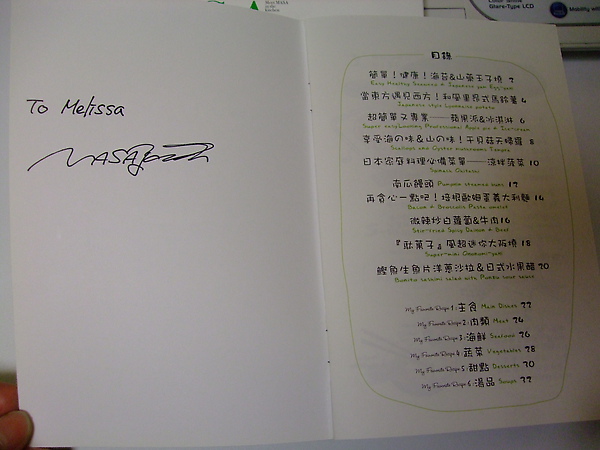 To Melissa
MASA
目錄
簡單！健康！海苔&山藥玉子燒 2
當東方遇見西方！和風里昂式馬鈴薯 4
Japanese style Lyonnaise potato
超簡單又專業——蘋果派&冰淇淋 6
享受海の味&山の味！干貝菇天婦羅 8
日本家庭料理必備菜單——涼拌菠菜 10
南瓜饅頭 Pumpkin steamed buns 12
再貪心一點吧！培根歐姆蛋義大利麵 14
微辣炒白蘿蔔&牛肉 16
Stir-fried Spicy Daikon & Beef
『駄菓子』風超迷你大阪燒 18
Super-mini Okonomi-yaki
鰹魚生魚片洋蔥沙拉&日式水果醋 20
Bonito sashimi salad with Ponzu sour sauce
My Favorite Recipe 1:主食 Main Dishes 22
My Favorite Recipe 2:肉類 Meat 24
My Favorite Recipe 3:海鮮 Seafood 26
My Favorite Recipe 4:蔬菜 Vegetables 28
My Favorite Recipe 5:甜點 Desserts 30
My Favorite Recipe 6:湯品 Soups 32
Glare-Type LCD